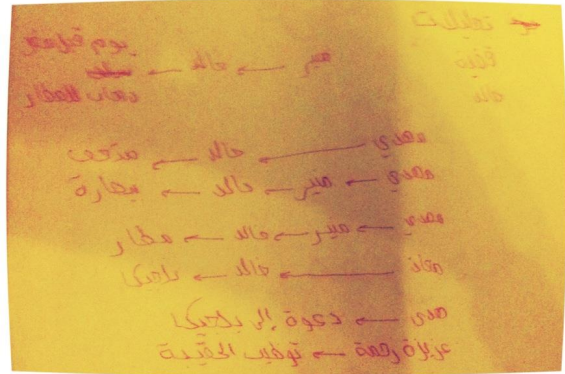 تحليلات
قضية
خالد
يوم قبل سفر
مير ← خالد ←
ذهاب للمطار
مهدي ← خالد ← متحف
مهدي ← مير ← خالد ← مهارة
مهدي ← مير ← خالد ← مطار
معاذ ← خالد ← بلجيكا
هدى ← دعوة إلى بلجيكا
عزيزة رحمة ← توضيب الحقيبة